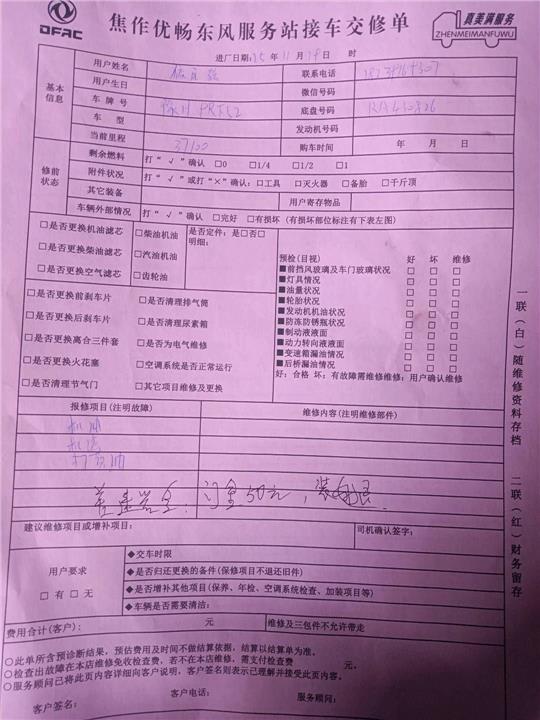 DFAC
焦作优畅东风服务站接车交修单
真美满服务
ZHENMEIMANFUWU
进厂日期:15 年 11 月 19 日 时
基本信息
用户姓名 联系电话
用户生日 微信号码
车牌号 底盘号码 RA410826
车型 发动机号码
当前里程 37100 购车时间 年 月 日
修前状态
剩余燃料 打“√”确认 □0 □1/4 □1/2 □1
附件状况 打“√”或打“×”确认:□工具 □灭火器 □备胎 □千斤顶
其它装备 用户寄存物品
车辆外部情况 打“√”确认 □完好 □有损坏（有损坏部位标注有下表左图）
□是否更换机油滤芯 □柴油机油 是否定件:是□否□
明细:
□是否更换柴油滤芯 □汽油机油
□是否更换空气滤芯 □齿轮油
预检(目视) 好 坏 维修
■前挡风玻璃及车门玻璃状况 □ □ □
■灯具情况 □ □ □
■油量状况 □ □ □
■轮胎状况 □ □ □
■发动机机油状况 □ □ □
■防冻防锈瓶状况 □ □ □
■制动液液面 □ □ □
■动力转向液液面 □ □ □
■变速箱漏油情况 □ □ □
■后桥漏油情况 □ □ □
好:合格 坏:有故障需维修维修:用户确认维修
□是否更换前刹车片 □是否清理排气筒
□是否更换后刹车片 □是否清理尿素箱
□是否更换离合三件套 □是否为电气维修
□是否更换火花塞 □空调系统是否正常运行
□是否清理节气门 □其它项目维修及更换
报修项目(注明故障) 维修内容(注明维修部件)
机油
机滤
打黄油
50元,
建议维修项目或增补项目: 司机确认签字:
用户要求
□有 □无
◆交车时限
◆是否归还更换的备件(保修项目不退还旧件)
◆是否增补其他项目(保养、年检、空调系统检查、加装项目等)
◆车辆是否需要清洁:
费用合计(客户): 元 维修及三包件不允许带走
○此单所含预诊断结果,预估费用及时间不做结算依据,结算以结算单为准。
○检查出故障在本店维修免收检查费,若不在本店维修,需支付检查费 元。
○服务顾问已将此页内容详细向客户说明,客户签名则表示已理解并接受此页内容。
客户签名: 客户电话: 服务顾问:
一联(白)随维修资料存档
二联(红)财务留存